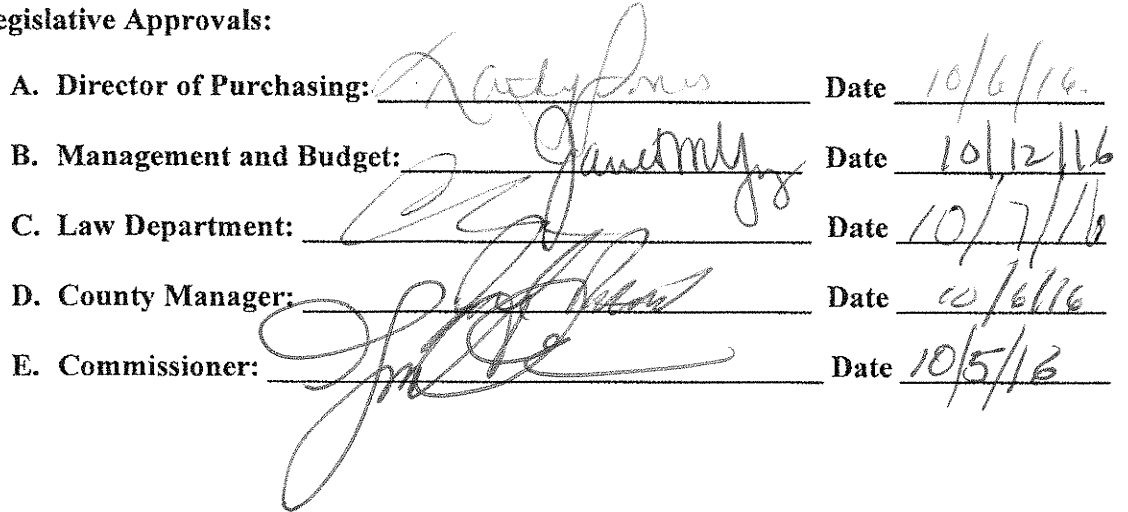 egislative Approvals:
A. Director of Purchasing: Date 10/6/16.
B. Management and Budget: Date 10/12/16
C. Law Department: Date 10/7/16
D. County Manager: Date 10/6/16
E. Commissioner: Date 10/5/16